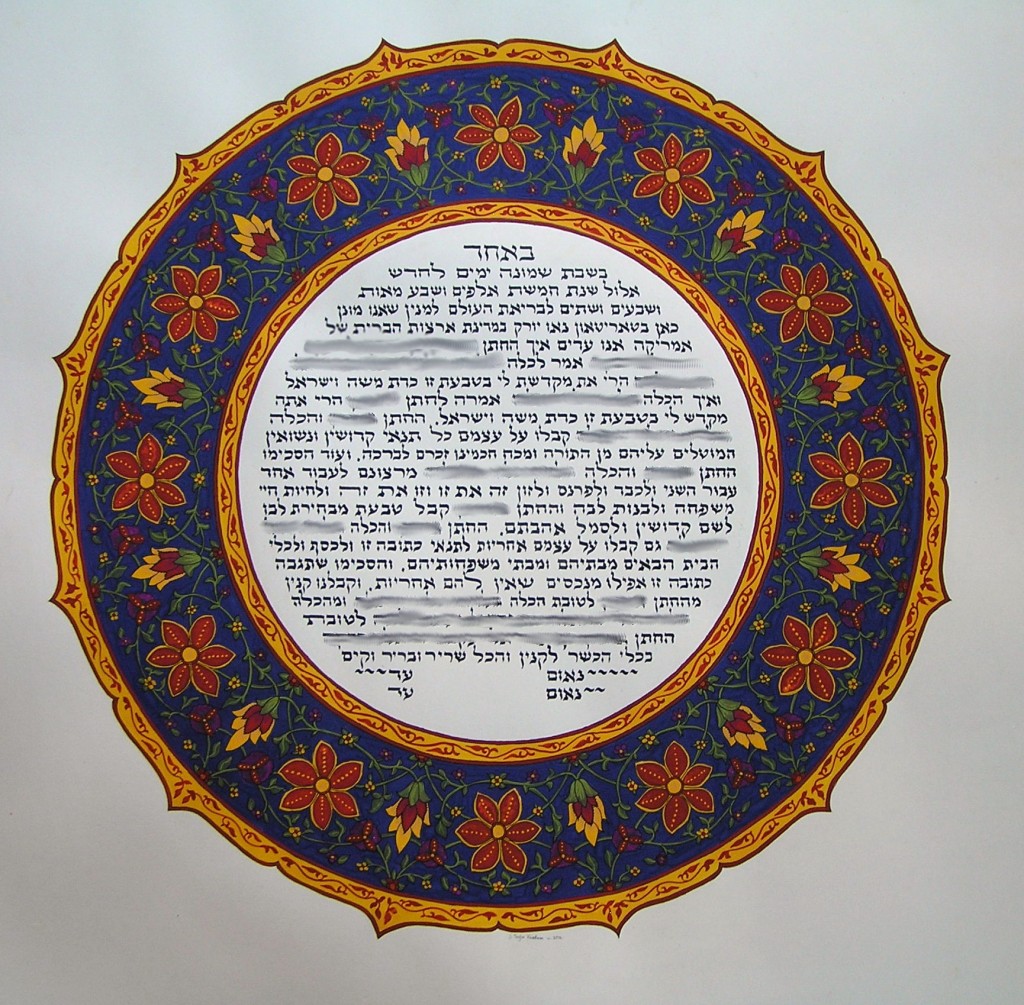 באחד
בשבת שמונה ימים לחדש
אלול שנת חמשת אלפים ושבע מאות
ושבעים ושתים לבריאת העולם למנין שאנו מונן
כאן בטאריטאון נאו יורק במדינת ארצות הברית של
אמריקה אנו עדים איך החתן
אמר לכלה
הרי את מקדשת לי בטבעת זו כדת משה וישראל
ואיך הכלה אמרה לחתן הרי אתה
מקדש לי בטבעת זו כדת משה וישראל. החתן והכלה
קבלו על עצמם כל תנאי קדושין ונשואין
המוטלים עליהם מן התורה ומכח חכמינו זכרם לברכה. ועוד הסכימו
החתן והכלה מרצונם לעבוד אחד
עבור השני ולכבד ולפרנס ולזון זה את זו וזו את זה ולחיות חיי
משפחה ולבנות לבה והחתן קבל טבעת מבחירת לבו
לשם קדושין ולסמל אהבתם. החתן והכלה
גם קבלו על עצמם אחריות לתנאי כתובה זו ולכסף ולכלי
הבית הבאים מבתיהם ומבתי משפחותיהם. והסכימו שתגבה
כתובה זו אפילו מנכסים שאין להם אחריות. וקבלנו קנין
מהחתן לטובת הכלה ומהכלה
לטובת
החתן
בכלי הכשר לקנין והכל שריר ובריר וקים.
נאום עד
נאום עד